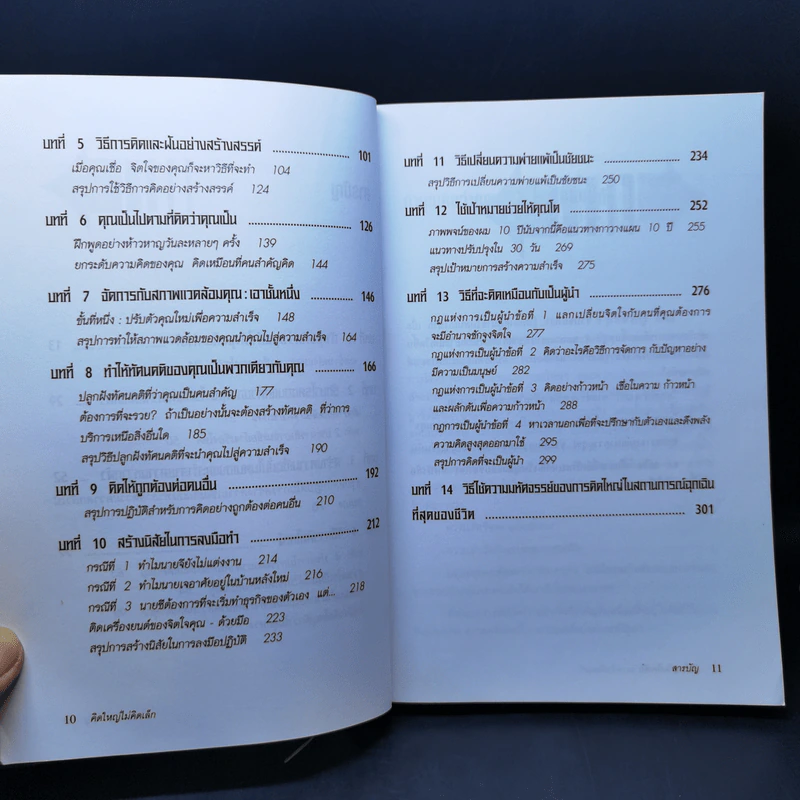 บทที่ 5 วิธีการคิดและฝันอย่างสร้างสรรค์ 101
เมื่อคุณเชื่อ จิตใจของคุณก็จะหาวิธีที่จะทำ 104
สรุปการใช้วิธีการคิดอย่างสร้างสรรค์ 124
บทที่ 6 คุณเป็นไปตามที่คิดว่าคุณเป็น 126
ฝึกพูดอย่างห้าวหาญวันละหลายๆ ครั้ง 139
ยกระดับความคิดของคุณ คิดเหมือนที่คนสำคัญคิด 144
บทที่ 7 จัดการกับสภาพแวดล้อมคุณ : เอาชั้นหนึ่ง 146
ชั้นที่หนึ่ง : ปรับตัวคุณใหม่เพื่อความสำเร็จ 148
สรุปการทำให้สภาพแวดล้อมของคุณนำคุณไปสู่ความสำเร็จ 164
บทที่ 8 ทำให้ทัศนคติของคุณเป็นพวกเดียวกับคุณ 166
ปลูกฝังทัศนคติที่ว่าคุณเป็นคนสำคัญ 177
ต้องการที่จะรวย? ถ้าเป็นอย่างนั้นจะต้องสร้างทัศนคติ ที่ว่าการ
บริการเหนือสิ่งอื่นใด 185
สรุปวิธีปลูกฝังทัศนคติที่จะนำคุณไปสู่ความสำเร็จ 190
บทที่ 9 คิดให้ถูกต้องต่อคนอื่น 192
สรุปการปฏิบัติสำหรับการคิดอย่างถูกต้องต่อคนอื่น 210
บทที่ 10 สร้างนิสัยในการลงมือทำ 212
กรณีที่ 1 ทำไมนายจียังไม่แต่งงาน 214
กรณีที่ 2 ทำไมนายเจอาศัยอยู่ในบ้านหลังใหม่ 216
กรณีที่ 3 นายซีต้องการที่จะเริ่มทำธุรกิจของตัวเอง แต่... 218
ติดเครื่องยนต์ของจิตใจคุณ - ด้วยมือ 223
สรุปการสร้างนิสัยในการลงมือปฏิบัติ 233
10 คิดใหญ่ไม่คิดเล็ก
บทที่ 11 วิธีเปลี่ยนความพ่ายแพ้เป็นชัยชนะ 234
สรุปวิธีการเปลี่ยนความพ่ายแพ้เป็นชัยชนะ 250
บทที่ 12 ใช้เป้าหมายช่วยให้คุณโต 252
ภาพพจน์ของผม 10 ปีนับจากนี้คือแนวทางการวางแผน 10 ปี 255
แนวทางปรับปรุงใน 30 วัน 269
สรุปเป้าหมายการสร้างความสำเร็จ 275
บทที่ 13 วิธีที่จะคิดเหมือนกับเป็นผู้นำ 276
กฎแห่งการเป็นผู้นำข้อที่ 1 แลกเปลี่ยนจิตใจกับคนที่คุณต้องการ
จะมีอำนาจชักจูงจิตใจ 277
กฎแห่งการเป็นผู้นำข้อที่ 2 คิดว่าอะไรคือวิธีการจัดการ กับปัญหาอย่าง
มีความเป็นมนุษย์ 282
กฎแห่งการเป็นผู้นำข้อที่ 3 คิดอย่างก้าวหน้า เชื่อในความ ก้าวหน้า
และผลักดันเพื่อความก้าวหน้า 288
กฎการเป็นผู้นำข้อที่ 4 หาเวลานอกเพื่อที่จะปรึกษากับตัวเองและดึงพลัง
ความคิดสูงสุดออกมาใช้ 295
สรุปการคิดที่จะเป็นผู้นำ 299
บทที่ 14 วิธีใช้ความมหัศจรรย์ของการคิดใหญ่ในสถานการณ์ฉุกเฉิน
ที่สุดของชีวิต 301
สารบัญ 11